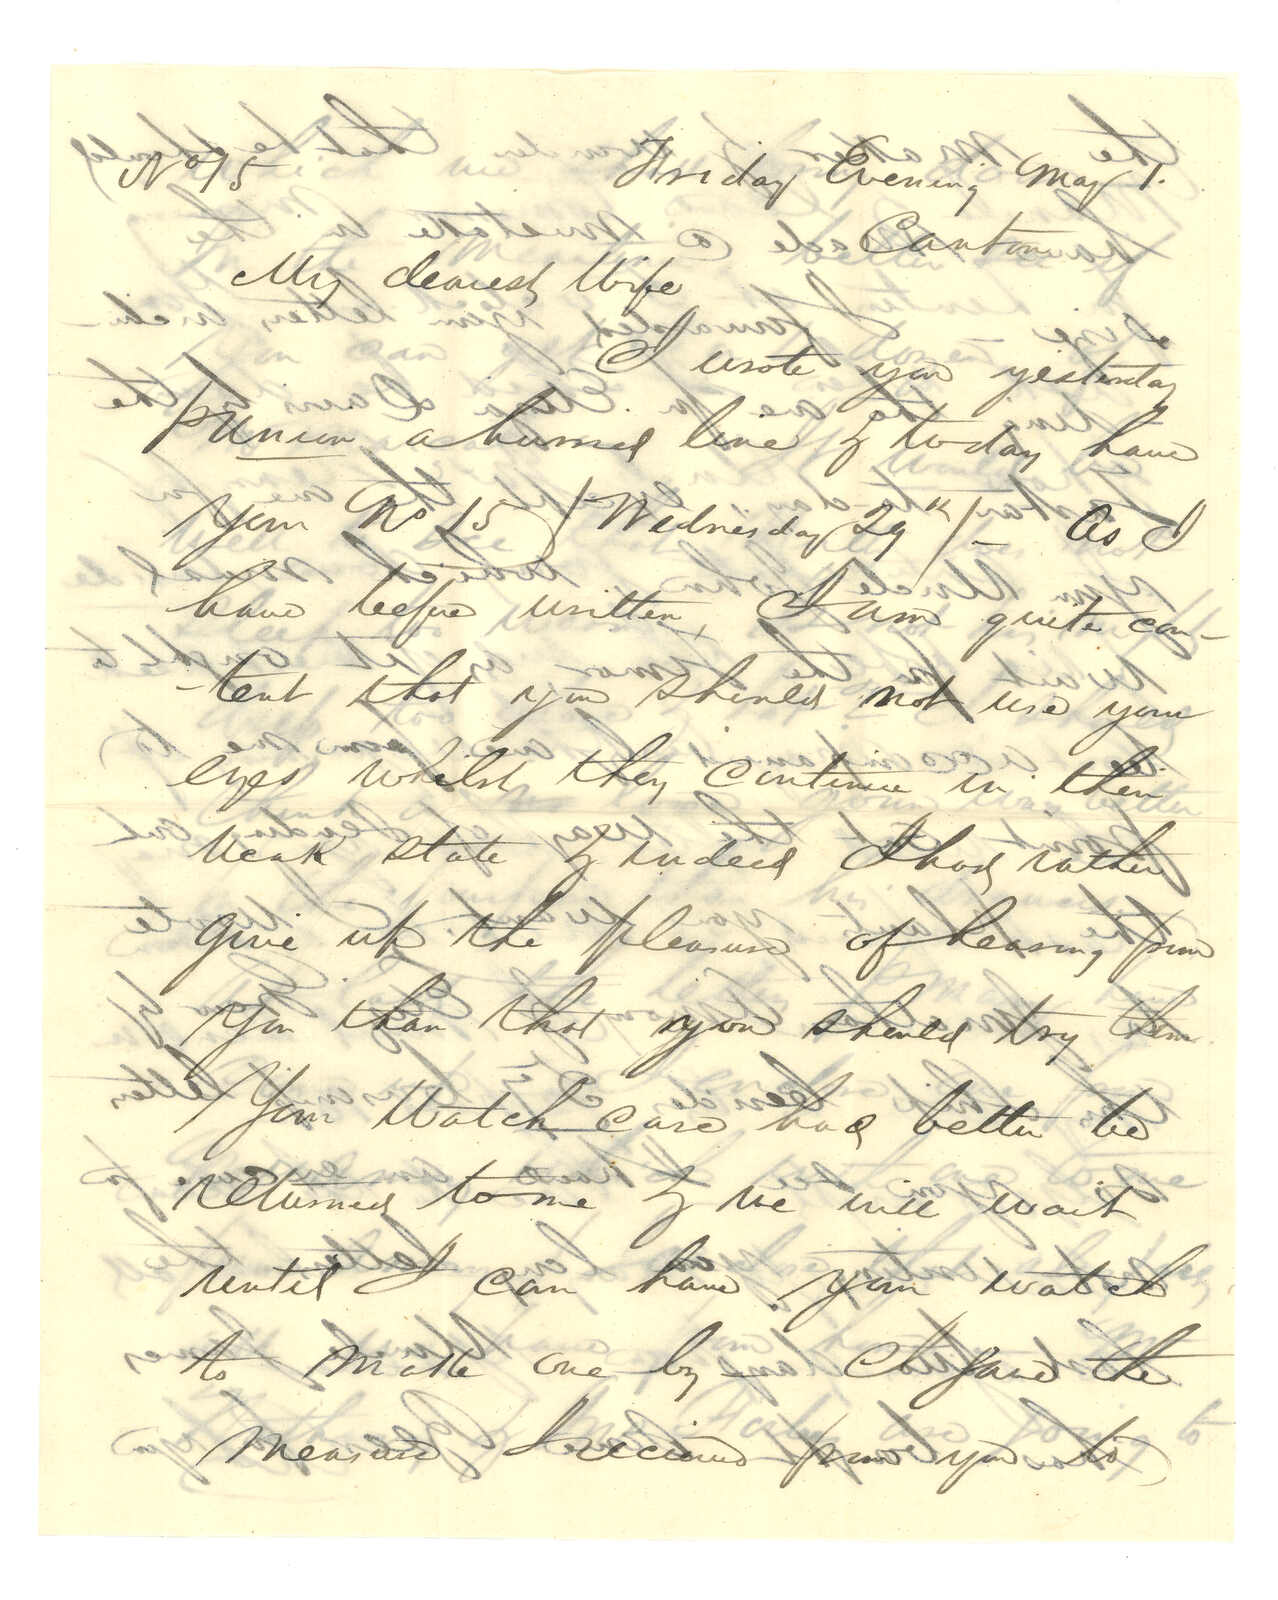 No 15 Friday Evening May 1.
Canton
My dearest Wife
I wrote you yesterday
p Union a hurried line & today have
your No 15 / Wednesday 29th / - As I
have before written, I am quite con-
-tent that you should not use your
eyes whilst they continue in their
weak state & indeed I had rather
give up the pleasure of hearing from
you than that you should try them.
Your Watch case had better be
returned to me & we will wait
until I can have your watch
to make one by - I gave the
measure I received from you to